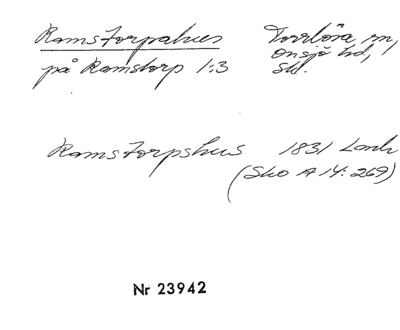 Ramstorpahus Torrlösa sn,
på Ramstorp 1:3 Onsjö hd,
Sk.
Ramstorpshus 1831 Lantm
(Sko A 14: 269)
Nr 23942